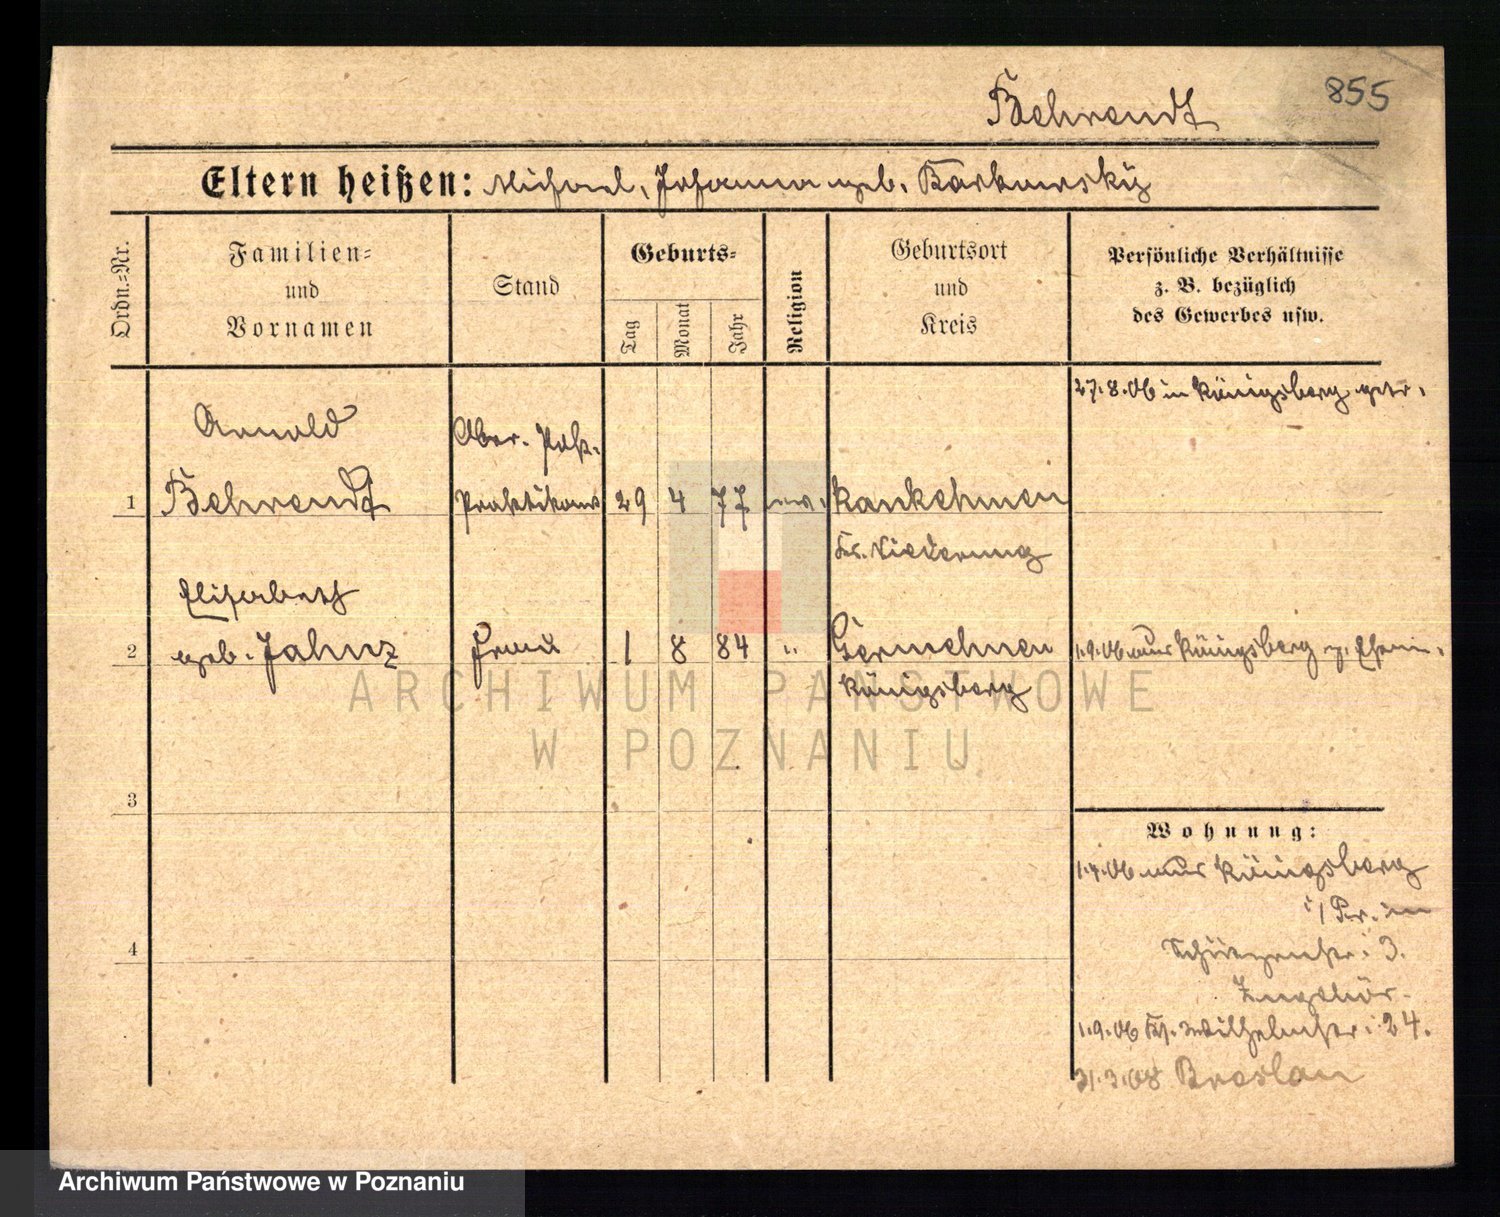 Behrendt
855
Eltern heißen: Michael, Johanna geb. Barkowsky
Ordn.=Nr.
Familien=
und
Vornamen
Stand
Geburts=
Tag
Monat
Jahr
Religion
Geburtsort
und
Kreis
Persönliche Verhältnisse
z. B. bezüglich
des Gewerbes usw.
27.8.06 in Königsberg getr.
Arnold
Ober-Post-
1 Behrendt Praktikant 29 4 77 ev. Kaukehmen
Kr. Niederung
Elisabeth
2 geb. Jahnz Frau 1 8 84 " Germehnen 1.9.06 aus Königsberg z. Ehem.
Königsberg
3
4
Wohnung:
06 aus Königsberg
i/Pr. in
Schützenstr. 3.
1.9.06 Wilhelmstr. 24.
31.3.08 Breslau
ARCHIWUM PAŃSTWOWE
W POZNANIU
Archiwum Państwowe w Poznaniu